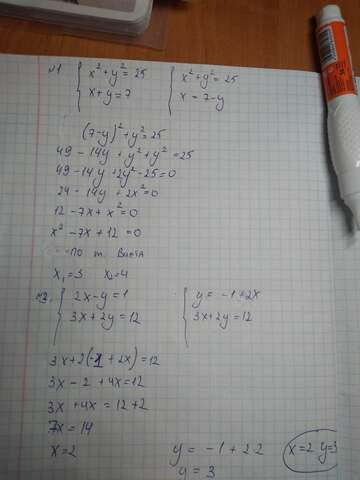 №1 { x² + y² = 25 { x² + y² = 25
x + y = 7 x = 7 - y
(7-y)² + y² = 25
49 - 14y + y² + y² = 25
49 - 14y + 2y² - 25 = 0
24 - 14y + 2x² = 0
12 - 7x + x² = 0
x² - 7x + 12 = 0
по т. Виета
x₁ = 3 x₂ = 4
№2. { 2x - y = 1 { y = -1 + 2x
3x + 2y = 12 3x + 2y = 12
3x + 2(-1 + 2x) = 12
3x - 2 + 4x = 12
3x + 4x = 12 + 2
7x = 14
x = 2 y = -1 + 2·2 x = 2 y = 3
y = 3